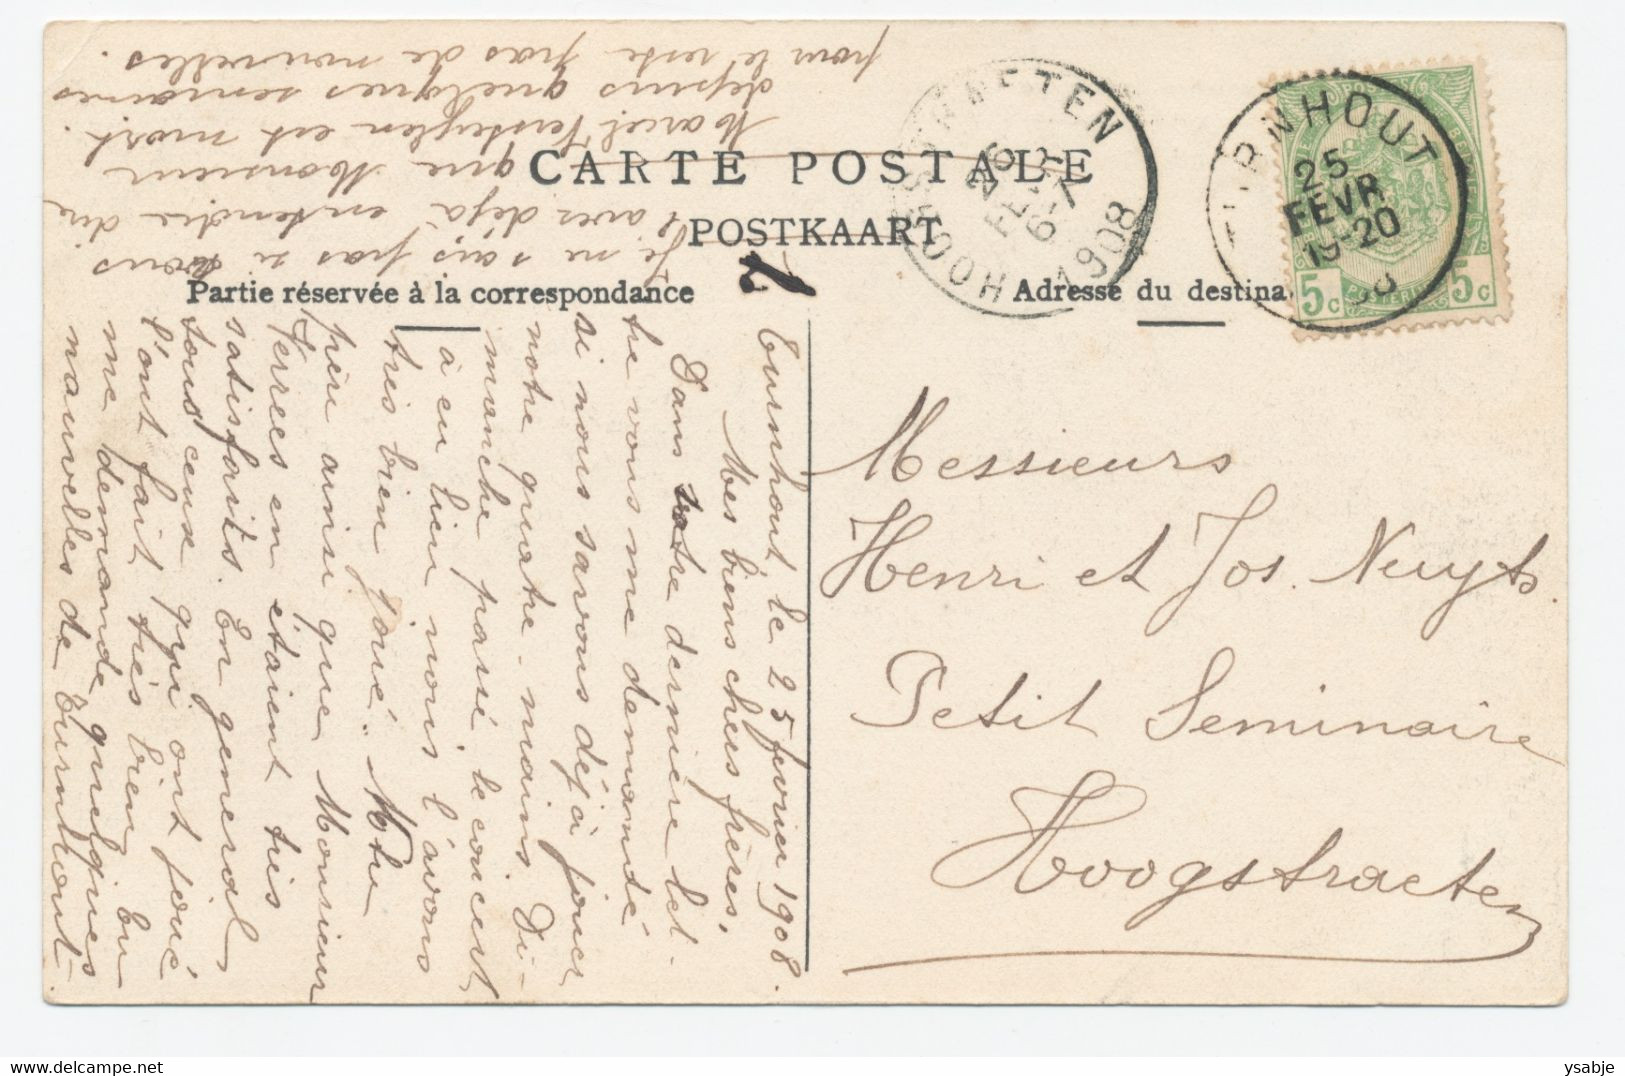 CARTE POSTALE
POSTKAART
Partie réservée à la correspondance
Adresse du destina
TURNHOUT
25
FEVR
19-20
08
HOOGSTRAETEN
26
6-7
1908
5c
5c
Turnhout le 25 fevrier 1908.
Mes biens chers frères,
Dans votre dernière let-
tre vous me demandé
si nous savons déjà jouer
notre quatre-mains. Di-
manche passé le concert
à eu lieu nous l'avons
très bien joué.
père ainsi que Monsieur
Verrees en étaient très
satisfaits. En general
tous ceux qui ont joué
l'ont fait très bien. Tu
me demande quelques
nauvelles de Turnhout
Je ne sais pas si vous
avez déjà entendre dire
que Monsieur
Marcel Versteylen est mort.
depuis quelques semaines
pour le reste pas de nouvelles.
Messieurs
Henri et Jos. Nuyts.
Petit Seminaire
Hoogstraeten
ysabje